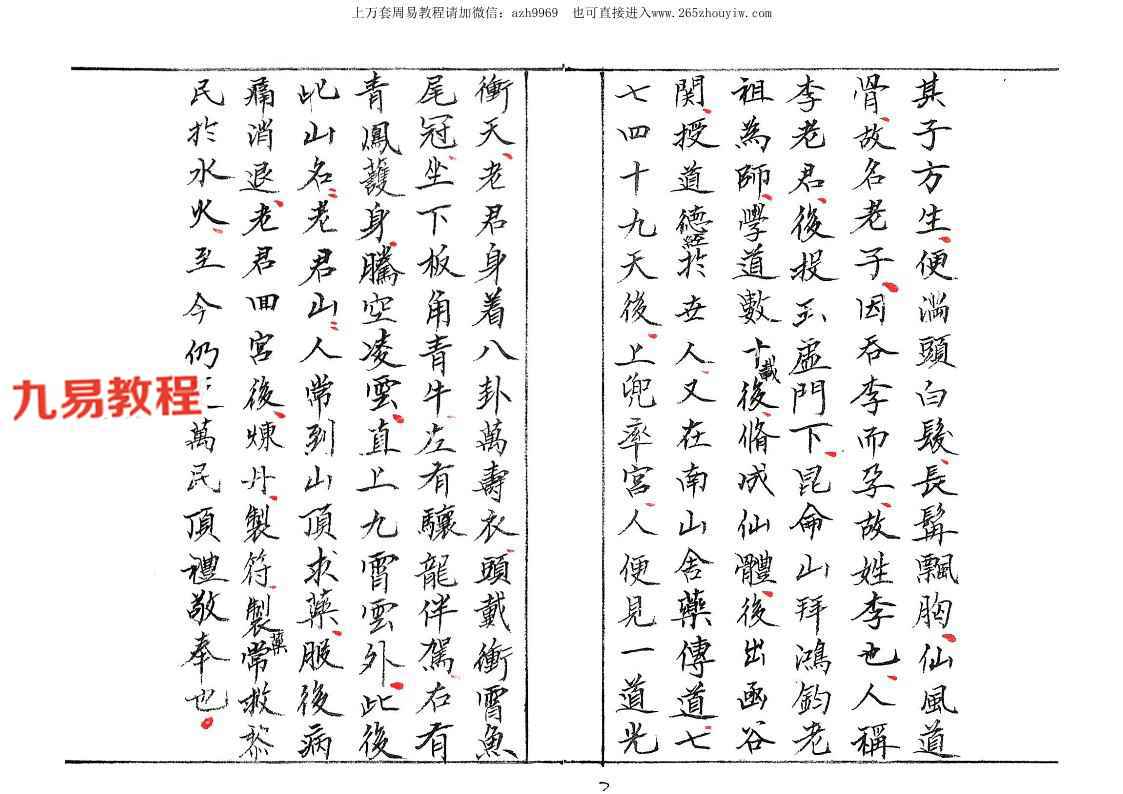 上万套周易教程请加微信：azh9969 也可直接进入www.265zhouyiw.com
其子方生、便满頭白髮、長髯飄胸、仙風道
骨、故名老子、因吞李而孕、故姓李也、人稱
李老君、後投玉虛門下、昆侖山拜鴻鈞老
祖為師、學道數十載後、脩成仙體、後出函谷
関、授道德經於世人、又在南山舍藥傳道、七
七四十九天後、上兜率宮、人便見一道光
衝天、老君身着八卦萬壽衣、頭戴衝霄魚
尾冠、坐下板角青牛、左有驤龍伴駕、右有
青鳳護身、騰空凌雲、直上九霄雲外、此後
此山名老君山、人常到山頂求藥、服後病
痛消退、老君回宮後、煉丹、製符、製藥常救黎
民於水火、至今仍 萬民頂禮敬奉也、
九易教程